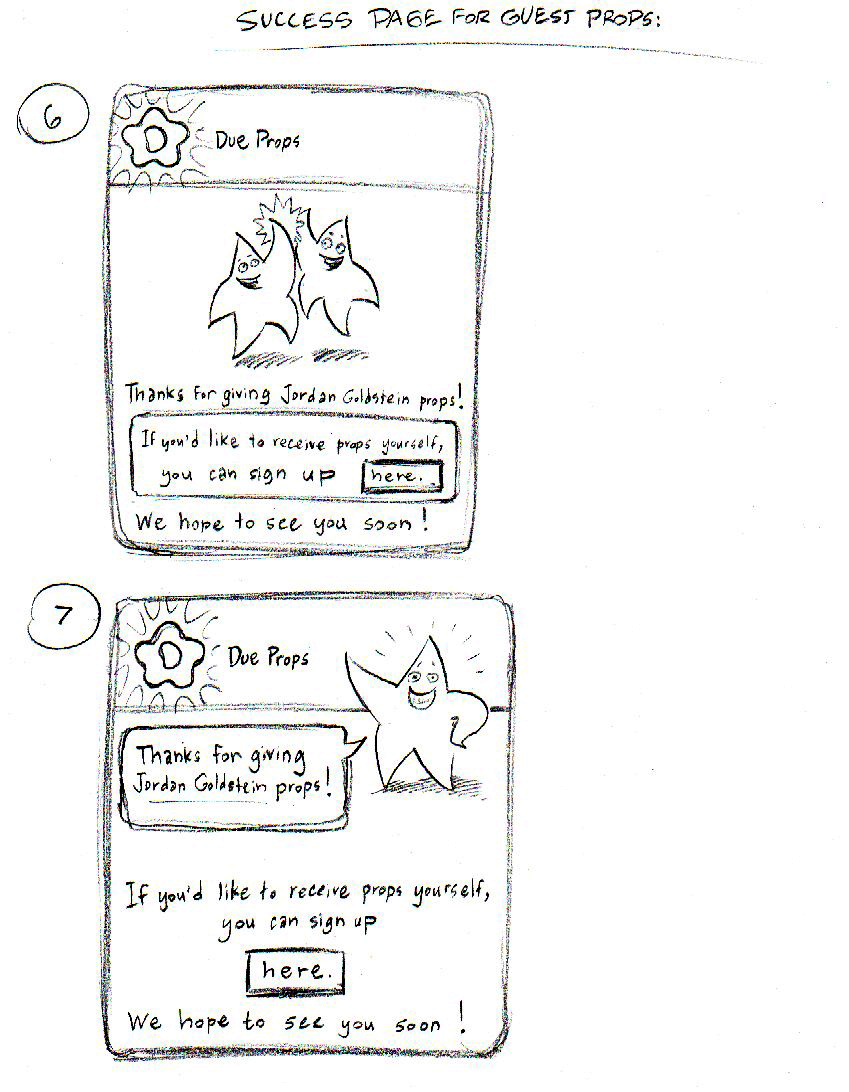 SUCCESS PAGE FOR GUEST PROPS:
6
D
Due Props
Thanks for giving Jordan Goldstein props!
If you'd like to receive props yourself,
you can sign up here.
We hope to see you soon!
7
D
Due Props
Thanks for giving
Jordan Goldstein props!
If you'd like to receive props yourself,
you can sign up
here.
We hope to see you soon!